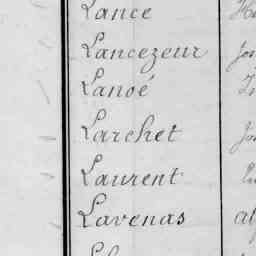 Lance
Lancezeur
Lanoé
Larchet
Laurent
Lavenas